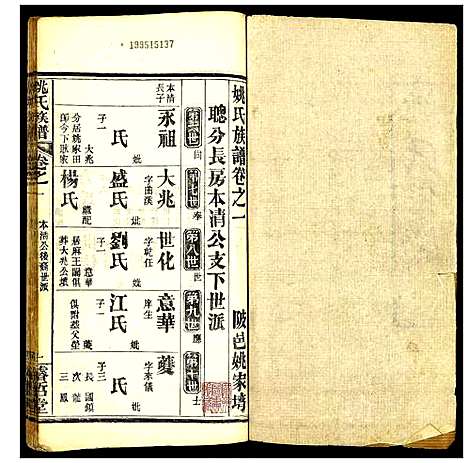 199515137
姚氏族譜卷之一
陂邑姚家塆
聰分長房本清公支下世派
第六世 尚
第七世 奉
第八世 世
第九世 應
第十世 士
本清長子
永祖
大兆
世化
意華
夔
妣
氏
子一
大兆
分居姚家田
即今下耿家
字曲溪
妣
盛氏
子一
繼配
楊氏
字乾任
妣
劉氏
子一
意華
葬大兆公墳
庠生
妣
江氏
子一
夔
俱附葬父塋
字來儀
妣
氏
子三
長 國鎮
次 龍
三 鳳
姚氏族譜
卷之一
本清公後裔世派
一
睿哲堂